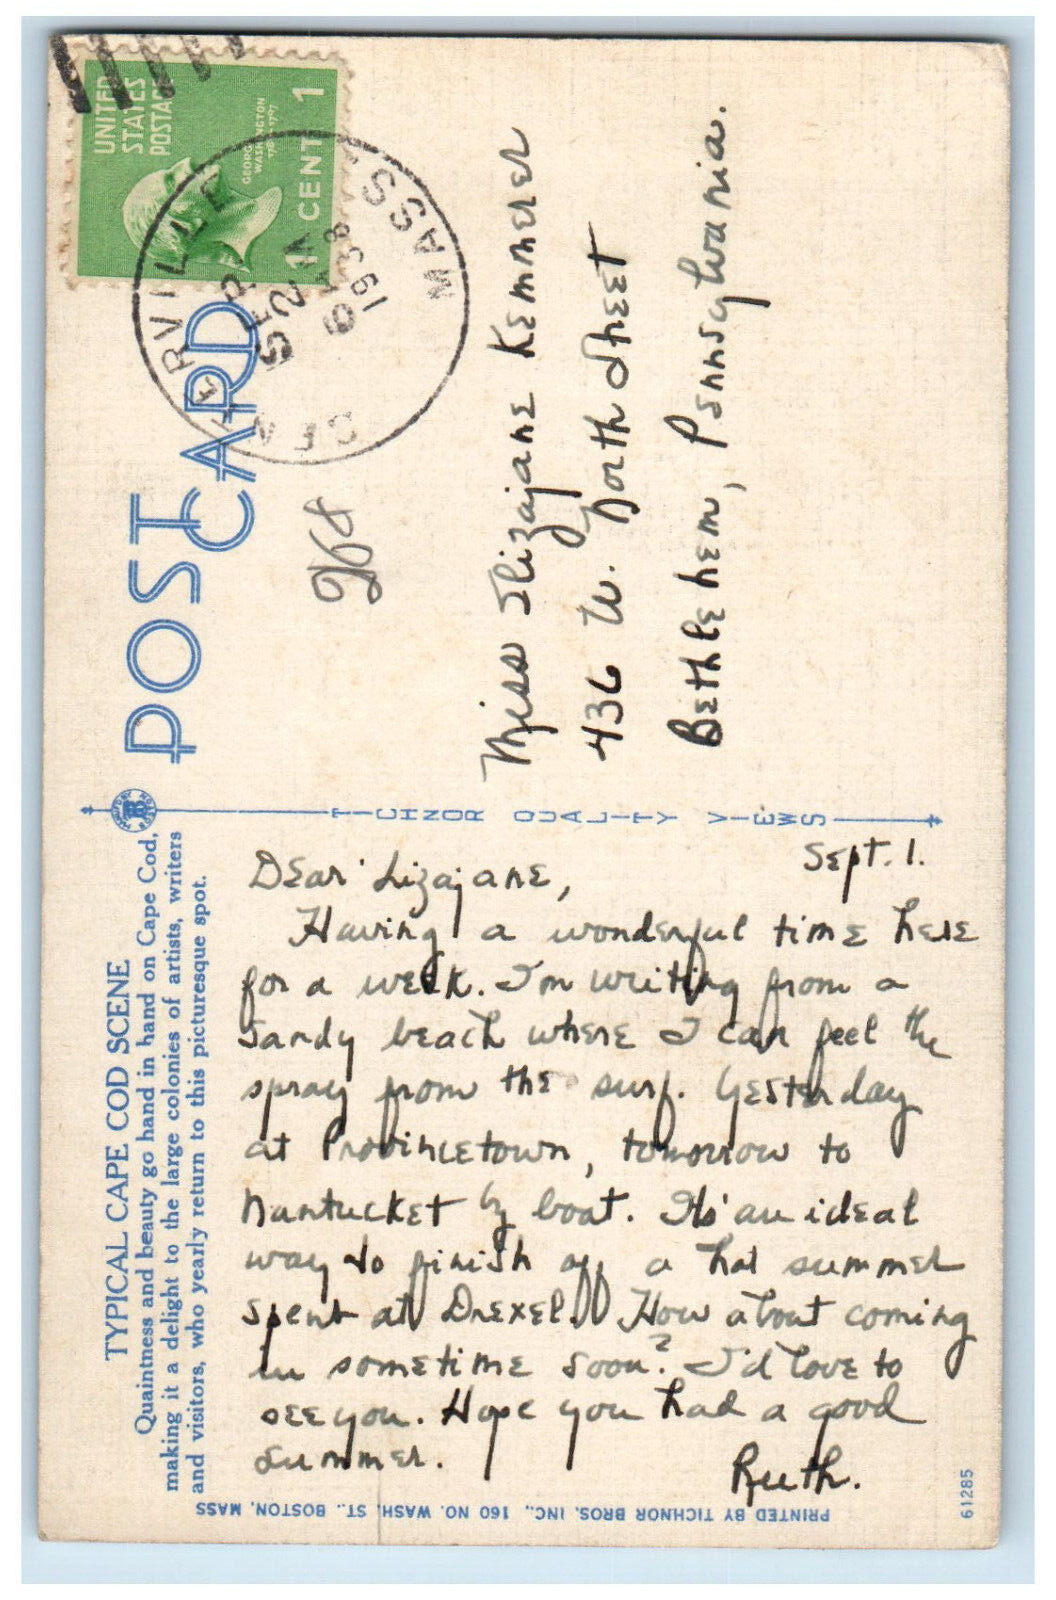 UNITED
STATES
POSTAGE
GEORGE
WASHINGTON
1789-1797
1 CENT 1
CENTERVILLE
MASS.
SEP
2
AM
1938
POST CARD
Miss Elizajane Kemmerer
436 W. North Street
Bethlehem, Pennsylvania.
TICHNOR QUALITY VIEWS
TYPICAL CAPE COD SCENE
Quaintness and beauty go hand in hand on Cape Cod,
making it a delight to the large colonies of artists, writers
and visitors, who yearly return to this picturesque spot.
Sept. 1.
Dear Lizajane,
Having a wonderful time here
for a week. I'm writing from a
sandy beach where I can feel the
spray from the surf. Yesterday
at Provincetown, tomorrow to
Nantucket by boat. It's an ideal
way to finish off a hot summer
spent at Drexel. How about coming
in sometime soon? I'd love to
see you. Hope you had a good
summer.
Ruth.
PRINTED BY TICHNOR BROS. INC., 160 NO. WASH. ST., BOSTON, MASS
61285